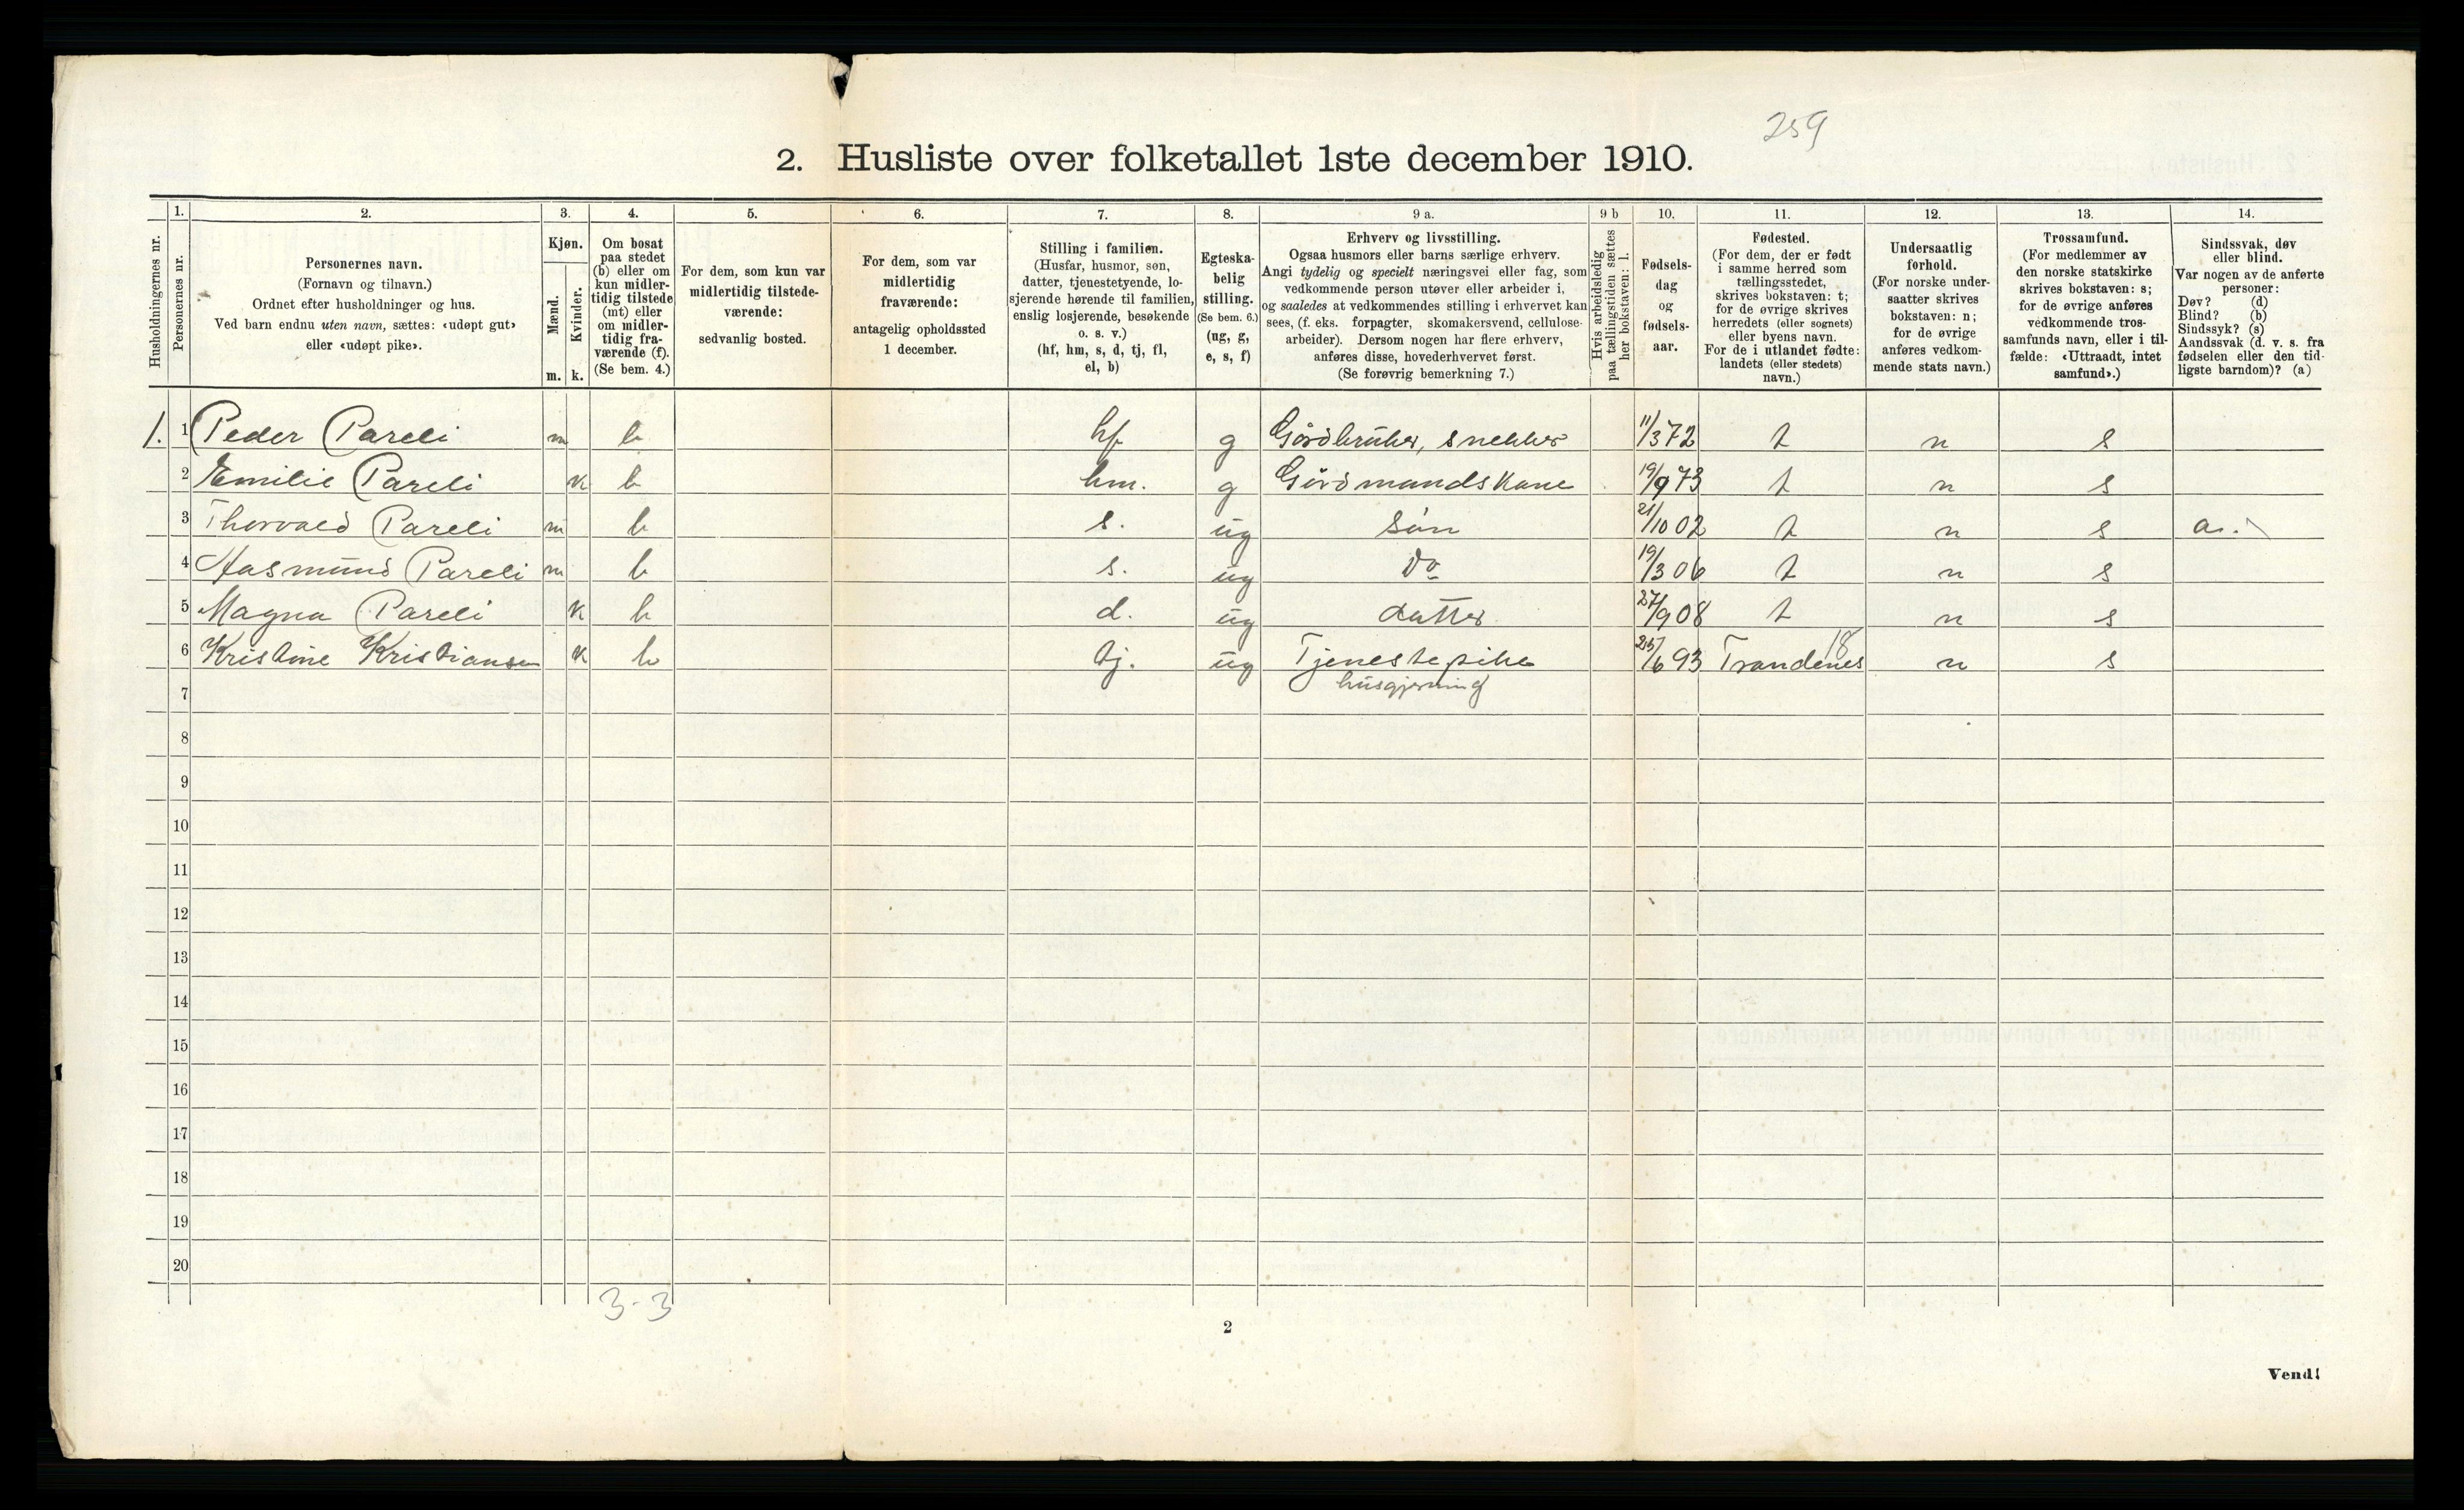 259
2. Husliste over folketallet 1ste december 1910.
Husholdningernes nr.
1.
Personernes nr.
2.
Personernes navn.
(Fornavn og tilnavn.)
Ordnet efter husholdninger og hus.
Ved barn endnu uten navn, sættes: «udøpt gut»
eller «udøpt pike».
3.
Kjøn.
Mænd.
Kvinder.
m. k.
4.
Om bosat
paa stedet
(b) eller om
kun midler-
tidig tilstede
(mt) eller
om midler-
tidig fra-
værende (f).
(Se bem. 4.)
5.
For dem, som kun var
midlertidig tilstede-
værende:
sedvanlig bosted.
6.
For dem, som var
midlertidig
fraværende:
antagelig opholdssted
1 december.
7.
Stilling i familien.
(Husfar, husmor, søn,
datter, tjenestetyende, lo-
sjerende hørende til familien,
enslig losjerende, besøkende
o. s. v.)
(hf, hm, s, d, tj, fl,
el, b)
8.
Egteska-
belig
stilling.
(Se bem. 6.)
(ug, g,
e, s, f)
9 a.
Erhverv og livsstilling.
Ogsaa husmors eller barns særlige erhverv.
Angi tydelig og specielt næringsvei eller fag, som
vedkommende person utøver eller arbeider i,
og saaledes at vedkommendes stilling i erhvervet kan
sees, (f. eks. forpagter, skomakersvend, cellulose-
arbeider). Dersom nogen har flere erhverv,
anføres disse, hovederhvervet først.
(Se forøvrig bemerkning 7.)
9 b
Hvis arbeidsledig
paa tællingstiden sættes
her bokstaven: l.
10.
Fødsels-
dag
og
fødsels-
aar.
11.
Fødested.
(For dem, der er født
i samme herred som
tællingsstedet,
skrives bokstaven: t;
for de øvrige skrives
herredets (eller sognets)
eller byens navn.
For de i utlandet fødte:
landets (eller stedets)
navn.)
12.
Undersaatlig
forhold.
(For norske under-
saatter skrives
bokstaven: n;
for de øvrige
anføres vedkom-
mende stats navn.)
13.
Trossamfund.
(For medlemmer av
den norske statskirke
skrives bokstaven: s;
for de øvrige anføres
vedkommende tros-
samfunds navn, eller i til-
fælde: «Uttraadt, intet
samfund».)
14.
Sindssvak, døv
eller blind.
Var nogen av de anførte
personer:
Døv? (d)
Blind? (b)
Sindssyk? (s)
Aandssvak (d. v. s. fra
fødselen eller den tid-
ligste barndom)? (a)
1. 1 Peder Pareli m b hf g Gårdbruker, snekker 11/3 72 t n s
2 Emilie Pareli k b hm. g Gårdmandskone 19/9 73 t n s
3 Thorvald Pareli m b s. ug søn 21/10 02 t n s a.
4 Aasmund Pareli m b s. ug Do 19/3 06 t n s
5 Magna Pareli k b d. ug datter 27/9 08 t n s
6 Kristine Kristiansen k b tj. ug Tjenestepike 25/6 93 Trandenes 18 n s
7 husgjerning
8
9
10
11
12
13
14
15
16
17
18
19
20
3-3
2
Vend!